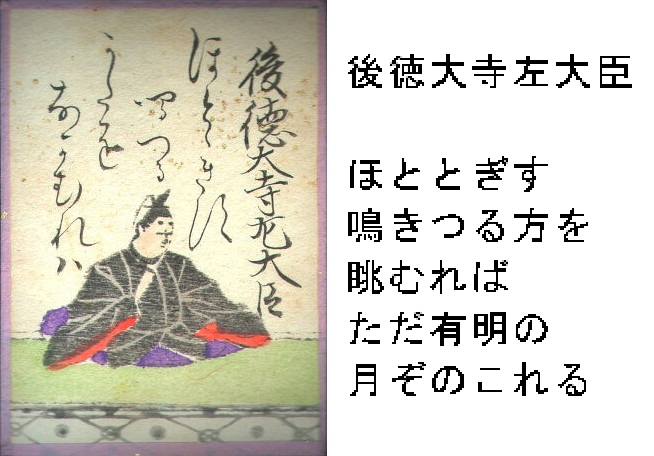 後徳大寺左大臣
ほとゝきす
鳴つる
かたを
なかむれハ
後徳大寺左大臣
ほととぎす
鳴きつる方を
眺むれば
ただ有明の
月ぞのこれる